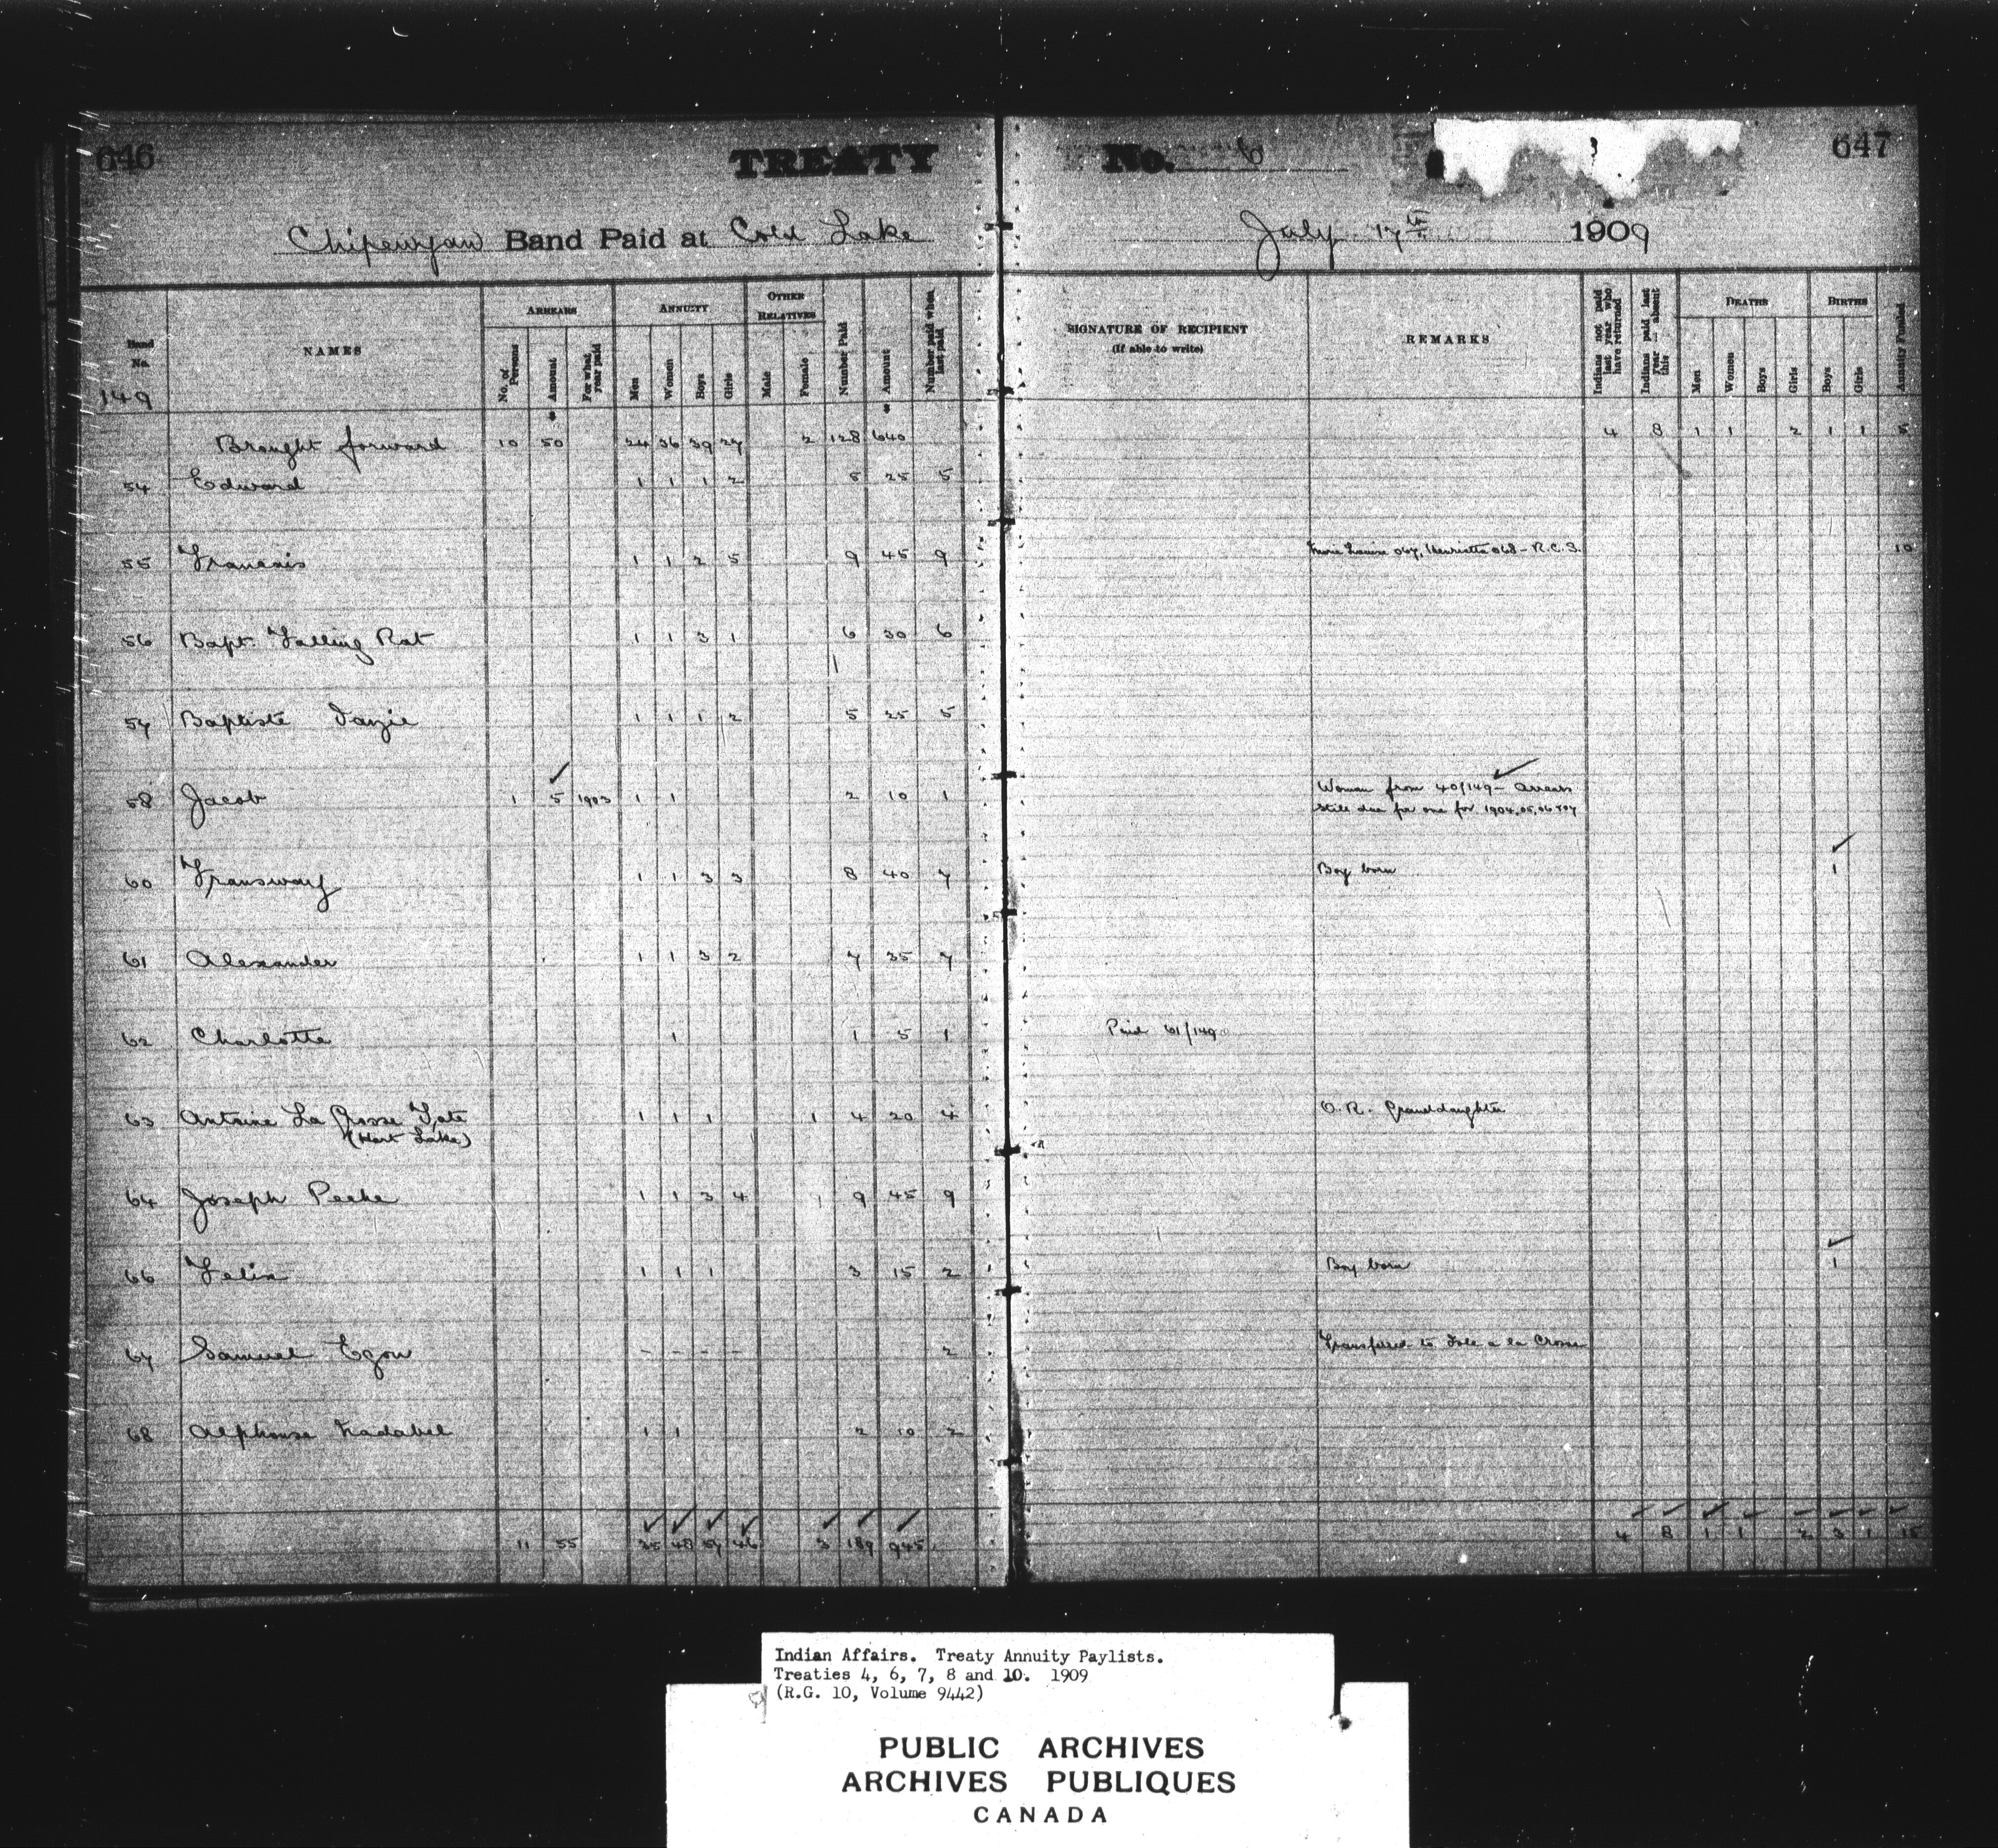 646
TREATY
No. 6
647
Chipewyan Band Paid at Cold Lake
July 17th 1909
Band No.
149
NAMES
ARREARS
No. of Persons
Amount
For what year paid
ANNUITY
Men
Women
Boys
Girls
OTHER RELATIVES
Male
Female
Number Paid
Amount
Number paid when last paid
SIGNATURE OF RECIPIENT
(if able to write)
REMARKS
Indians not paid last year who have returned
Indians paid last year — absent this
DEATHS
Men
Women
Boys
Girls
BIRTHS
Boys
Girls
Annuity Funded
Brought forward 10 50 24 36 39 27 2 128 640 4 8 1 1 2 1 1 5
54 Edward 1 1 1 2 5 25 5
55 Francois 1 1 2 5 9 45 9 Louise 067, Henrietta 068 - R.C.S. 10
56 Bapt. Falling Rat 1 1 3 1 6 30 6
57 Baptiste Janzie 1 1 1 2 5 25 5
58 Jacob 1 5 1903 1 1 2 10 1 Woman from 40/149 - Arrears
still due for one for 1904,05,06 &07
60 Transway 1 1 3 3 8 40 7 Boy born 1
61 Alexander 1 1 3 2 7 35 7
62 Charlotte 1 1 5 1 Paid 61/149
63 Antoine La Grosse Tete 1 1 1 1 4 20 4 O.R. Granddaughter
(Hart Lake)
64 Joseph Peche 1 1 3 4 9 45 9
66 Felix 1 1 1 3 15 2 Boy born 1
67 Samuel Egow - - - - 2 Transferred to Isle a la Crosse
68 Alphonse 1 1 2 10 2
11 55 35 48 57 46 3 189 945 4 8 1 1 2 3 1 15
Indian Affairs. Treaty Annuity Paylists.
Treaties 4, 6, 7, 8 and 10. 1909
(R.G. 10, Volume 9442)
PUBLIC ARCHIVES
ARCHIVES PUBLIQUES
CANADA